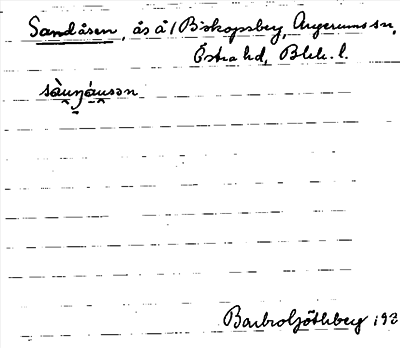 Sandåsen, ås å / Biskopsberg, Augerums sn,
Östra hd, Blek. l.
sàuŋáusən
Barbro Götheberg 193